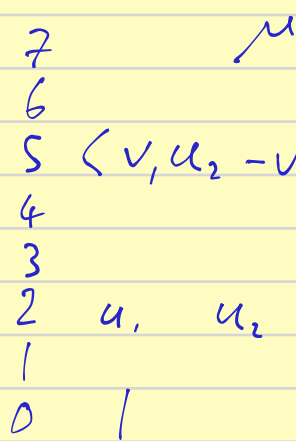 7 μ
6
5 < v, u₂ - v
4
3
2 u₁ u₂
1
0 1